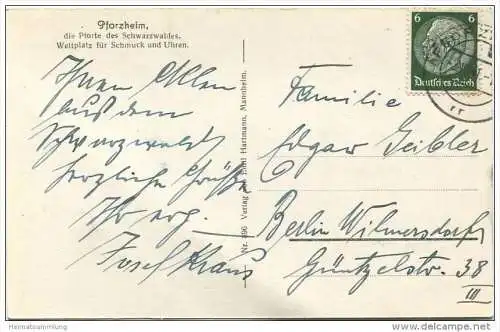 Pforzheim,
die Pforte des Schwarzwaldes.
Weltplatz für Schmuck und Uhren.
Ihnen Allen
aus dem
Schwarzwald
herzliche Grüße
Ihr erg.
Josef Kraus
Nr. 696 Verlag von Emil Hartmann, Mannheim.
6 6
Deutsches Reich
Familie
Edgar Geibler
Berlin Wilmersdorf
Güntzelstr. 38
III
Heimatsammlung
www.ansichtskartenversand.com